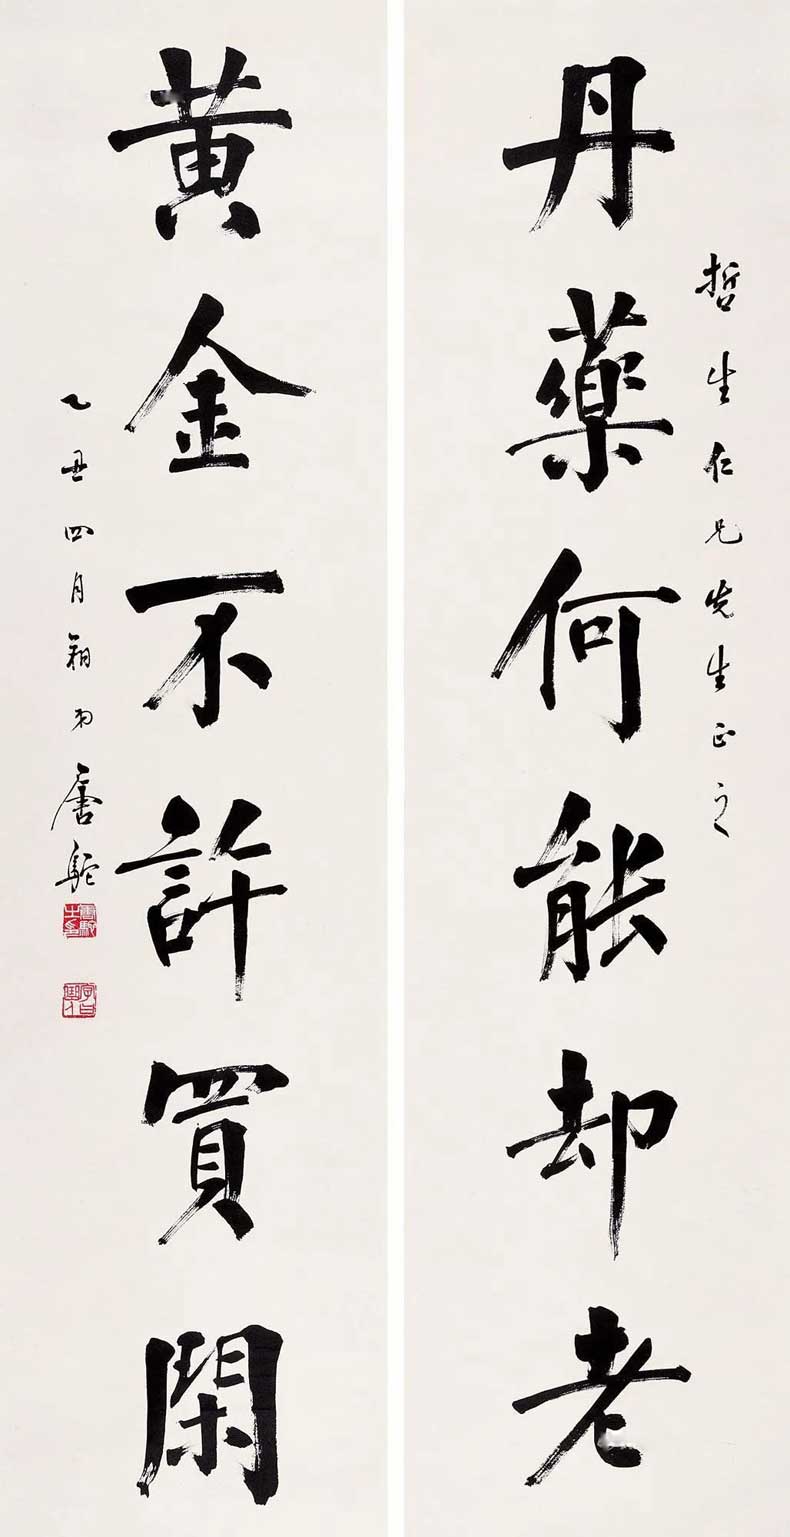 哲生仁兄先生正之
丹藥何能却老
黄金不許買閑
乙丑四月唐駝